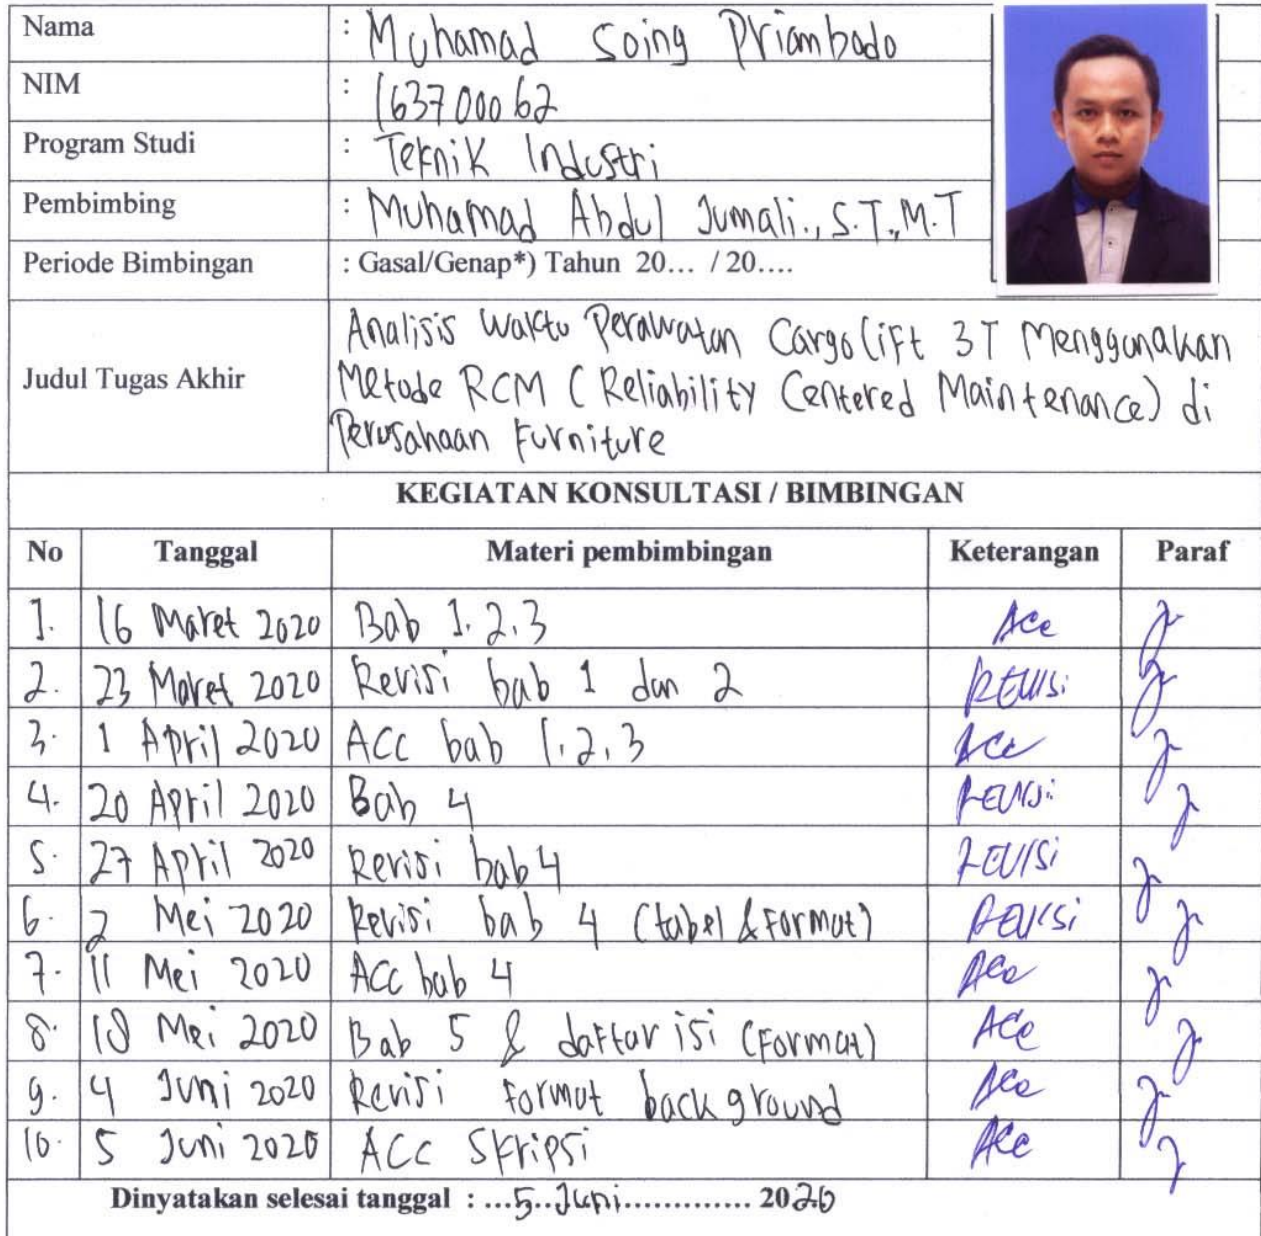 Nama : Muhamad Soing Priambodo
NIM : 163700062
Program Studi : Teknik Industri
Pembimbing : Muhamad Abdul Jumali., S.T., M.T
Periode Bimbingan : Gasal/Genap*) Tahun 20... / 20....
Judul Tugas Akhir : Analisis Waktu Perawatan Cargo Lift 3T Menggunakan
Metode RCM (Reliability Centered Maintenance) di
Perusahaan Furniture
KEGIATAN KONSULTASI / BIMBINGAN
No Tanggal Materi pembimbingan Keterangan Paraf
1. 16 Maret 2020 Bab 1.2.3 Acc
2. 23 Maret 2020 Revisi bab 1 dan 2 REVISI
3. 1 April 2020 ACC bab 1.2.3 Acc
4. 20 April 2020 Bab 4 REVISI
5. 27 April 2020 Revisi bab 4 REVISI
6. 2 Mei 2020 Revisi bab 4 (tabel & Format) REVISI
7. 11 Mei 2020 ACC bab 4 Acc
8. 18 Mei 2020 Bab 5 & daftar isi (Format) Acc
9. 4 Juni 2020 Revisi format background Acc
10. 5 Juni 2020 ACC Skripsi Acc
Dinyatakan selesai tanggal : ...5..Juni............. 2020